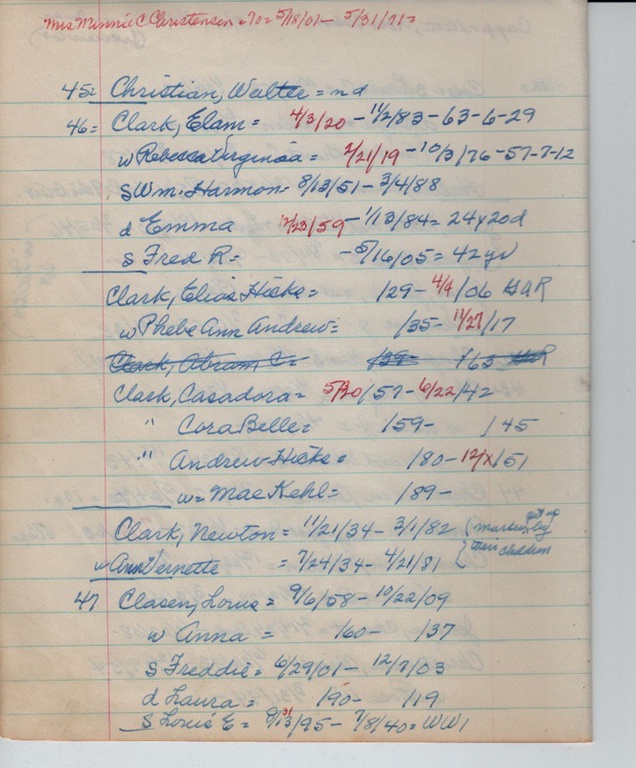 Mrs Minnie C. Christensen = 70 = 5/18/01 - 5/31/71 =
45= Christian, Walter = nd
46= Clark, Elam = 4/3/20 - 11/2/83 - 63-6-29
w Rebecca Virginia = 2/21/19 - 10/3/76 - 57-7-12
S Wm. Harmon = 8/13/51 - 3/4/88
d Emma 12/23/59 - 1/13/84 = 24y 20d
S Fred R = - 5/16/05 = 42 yr
Clark, Elias Hicks = /29 - 4/4/06 GAR
w Phebe Ann Andrew = /35 - 11/27/17
Clark, Abram C = /39 = /63
Clark, Casadora = 5/20/57 - 6/22/42
" Cora Belle = /59 - /45
" Andrew Hicks = /80 - 12/x/51
w = Mae Kehl = /89 -
Clark, Newton = 11/21/34 - 3/1/82 { marker put up by
w Ann Vernette = 7/24/34 - 4/21/81 { their children
47 Clasen, Louis = 9/6/58 - 10/22/09
w Anna = /60 - /37
S Freddie = 6/29/01 - 12/7/03
d Laura = /90 - /19
S Louis E = 9/13/95 - 7/8/40 = WW1